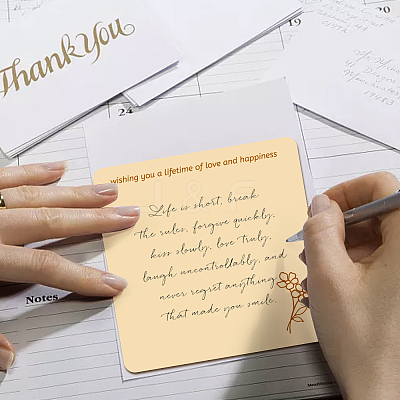 ThankYou
20
19
24
wishing you a lifetime of love and happiness
Life is short, break
the rules, forgive quickly,
kiss slowly, love truly,
laugh uncontrollably, and
never regret anything
that made you smile.
Notes